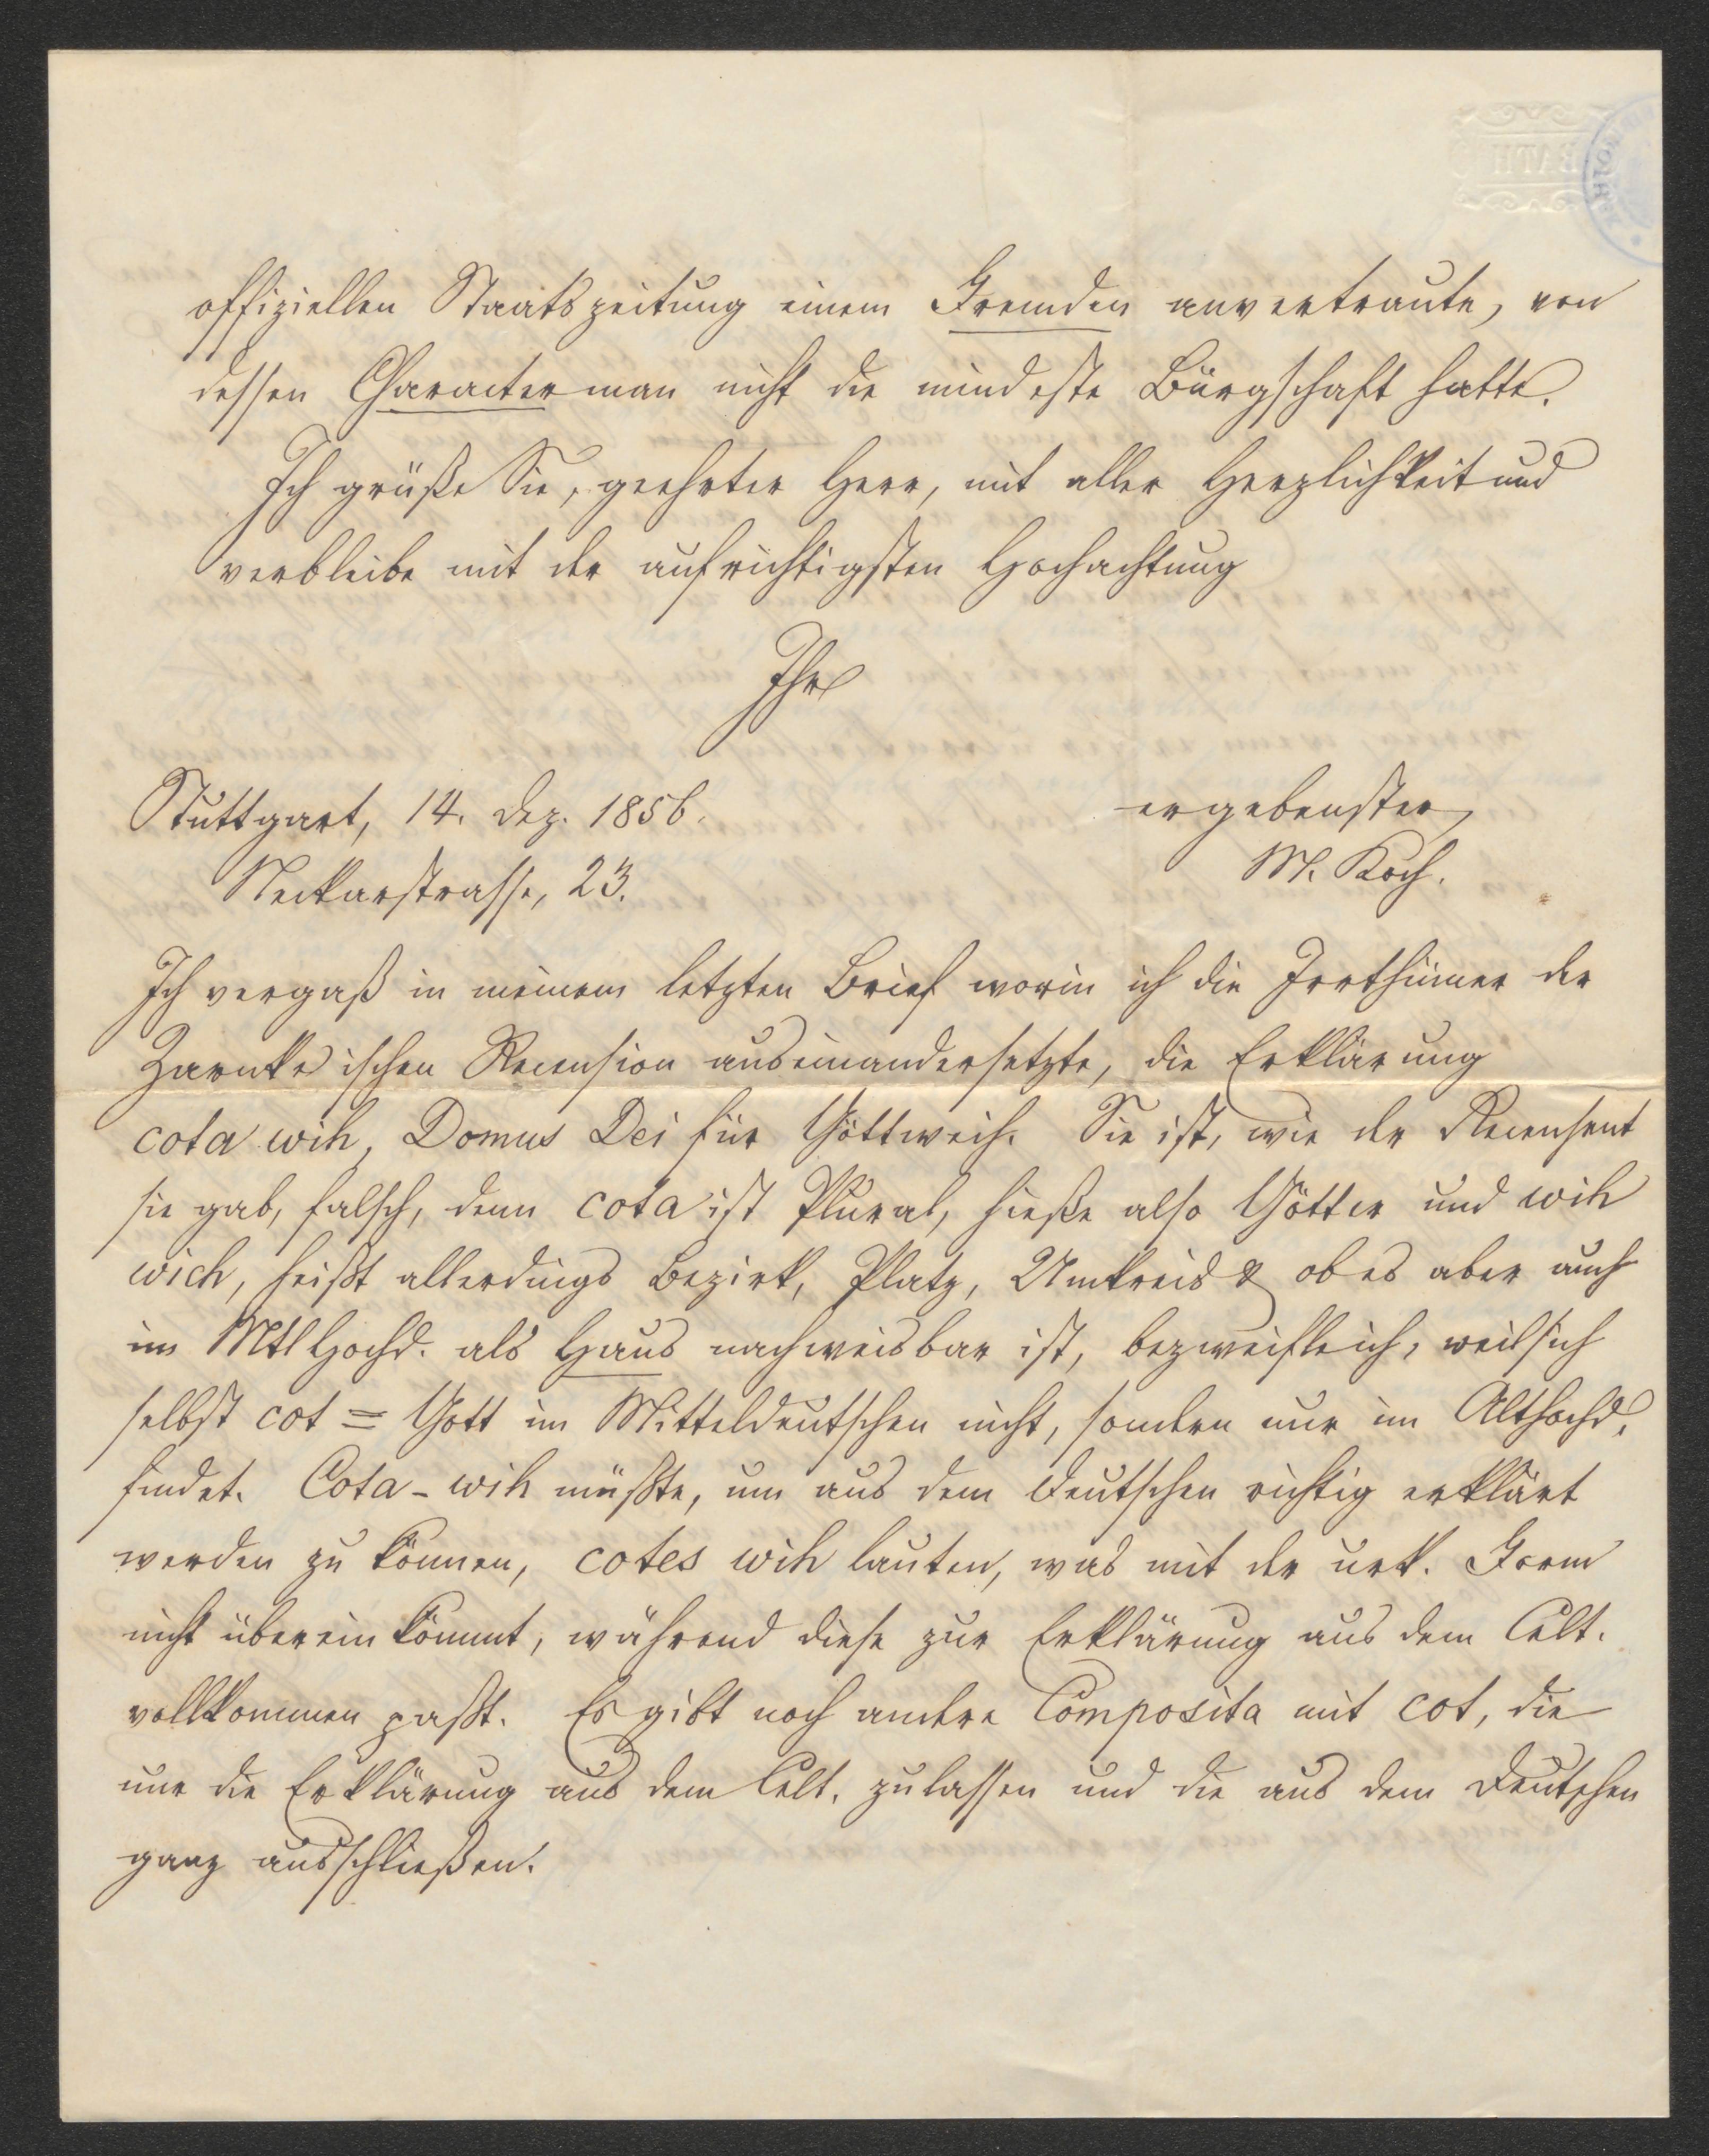 offiziellen Staatszeitung einem Fremden anvertraute, von
dessen Character man nicht die mindeste Bürgschaft hatte.
Ich grüße Sie, geehrter Herr, mit aller Herzlichkeit und
verbleibe mit der aufrichtigsten Hochachtung
Ihr
ergebenster
Stuttgart, 14. Dez. 1856.
M. Koch.
Neckarstrasse, 23.
Ich vergaß in meinem letzten Brief worin ich die Irrthümer der
Zarncke'ischen Recension auseinandersetzte, die Erklärung
cota wih, Domus Dei für Göttweih. Sie ist, wie der Recensent
sie gab, falsch, denn cota ist Plural, hieße also Götter und wih
wich, heißt allerdings Bezirk, Platz, Umkreis & ob es aber auch
im Mtlhochd. als Haus nachweisbar ist, bezweifle ich, weil sich
selbst cot = Gott im Mitteldeutschen nicht, sondern nur im Althochd.
findet. Cota-wih müßte, um aus dem Deutschen richtig erklärt
werden zu können, cotes wih lauten, was mit der urk. Form
nicht übereinkömmt, während diese zur Erklärung aus dem Celt.
vollkommen paßt. Es gibt noch andere Composita mit cot, die
nur die Erklärung aus dem Celt. zulassen und die aus dem Deutschen
ganz ausschließen.